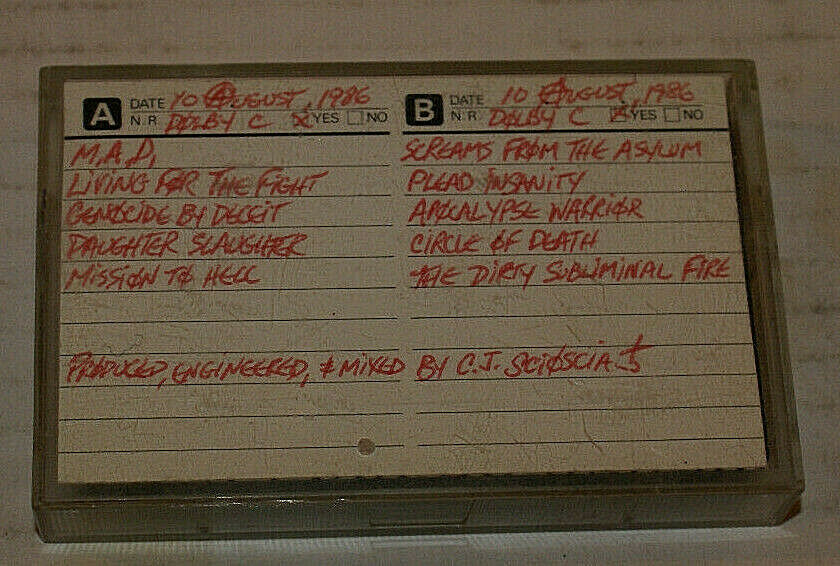 A DATE 10 AUGUST, 1986
N.R. DOLBY C YES NO
M.A.D.
LIVING FOR THE FIGHT
GENOCIDE BY DECEIT
DAUGHTER SLAUGHTER
MISSION TO HELL
B DATE 10 AUGUST, 1986
N.R. DOLBY C YES NO
SCREAMS FROM THE ASYLUM
PLEAD INSANITY
APOCALYPSE WARRIOR
CIRCLE OF DEATH
THE DIRTY SUBLIMINAL FIRE
PRODUCED, ENGINEERED, & MIXED BY C.J. SCIOSCIA